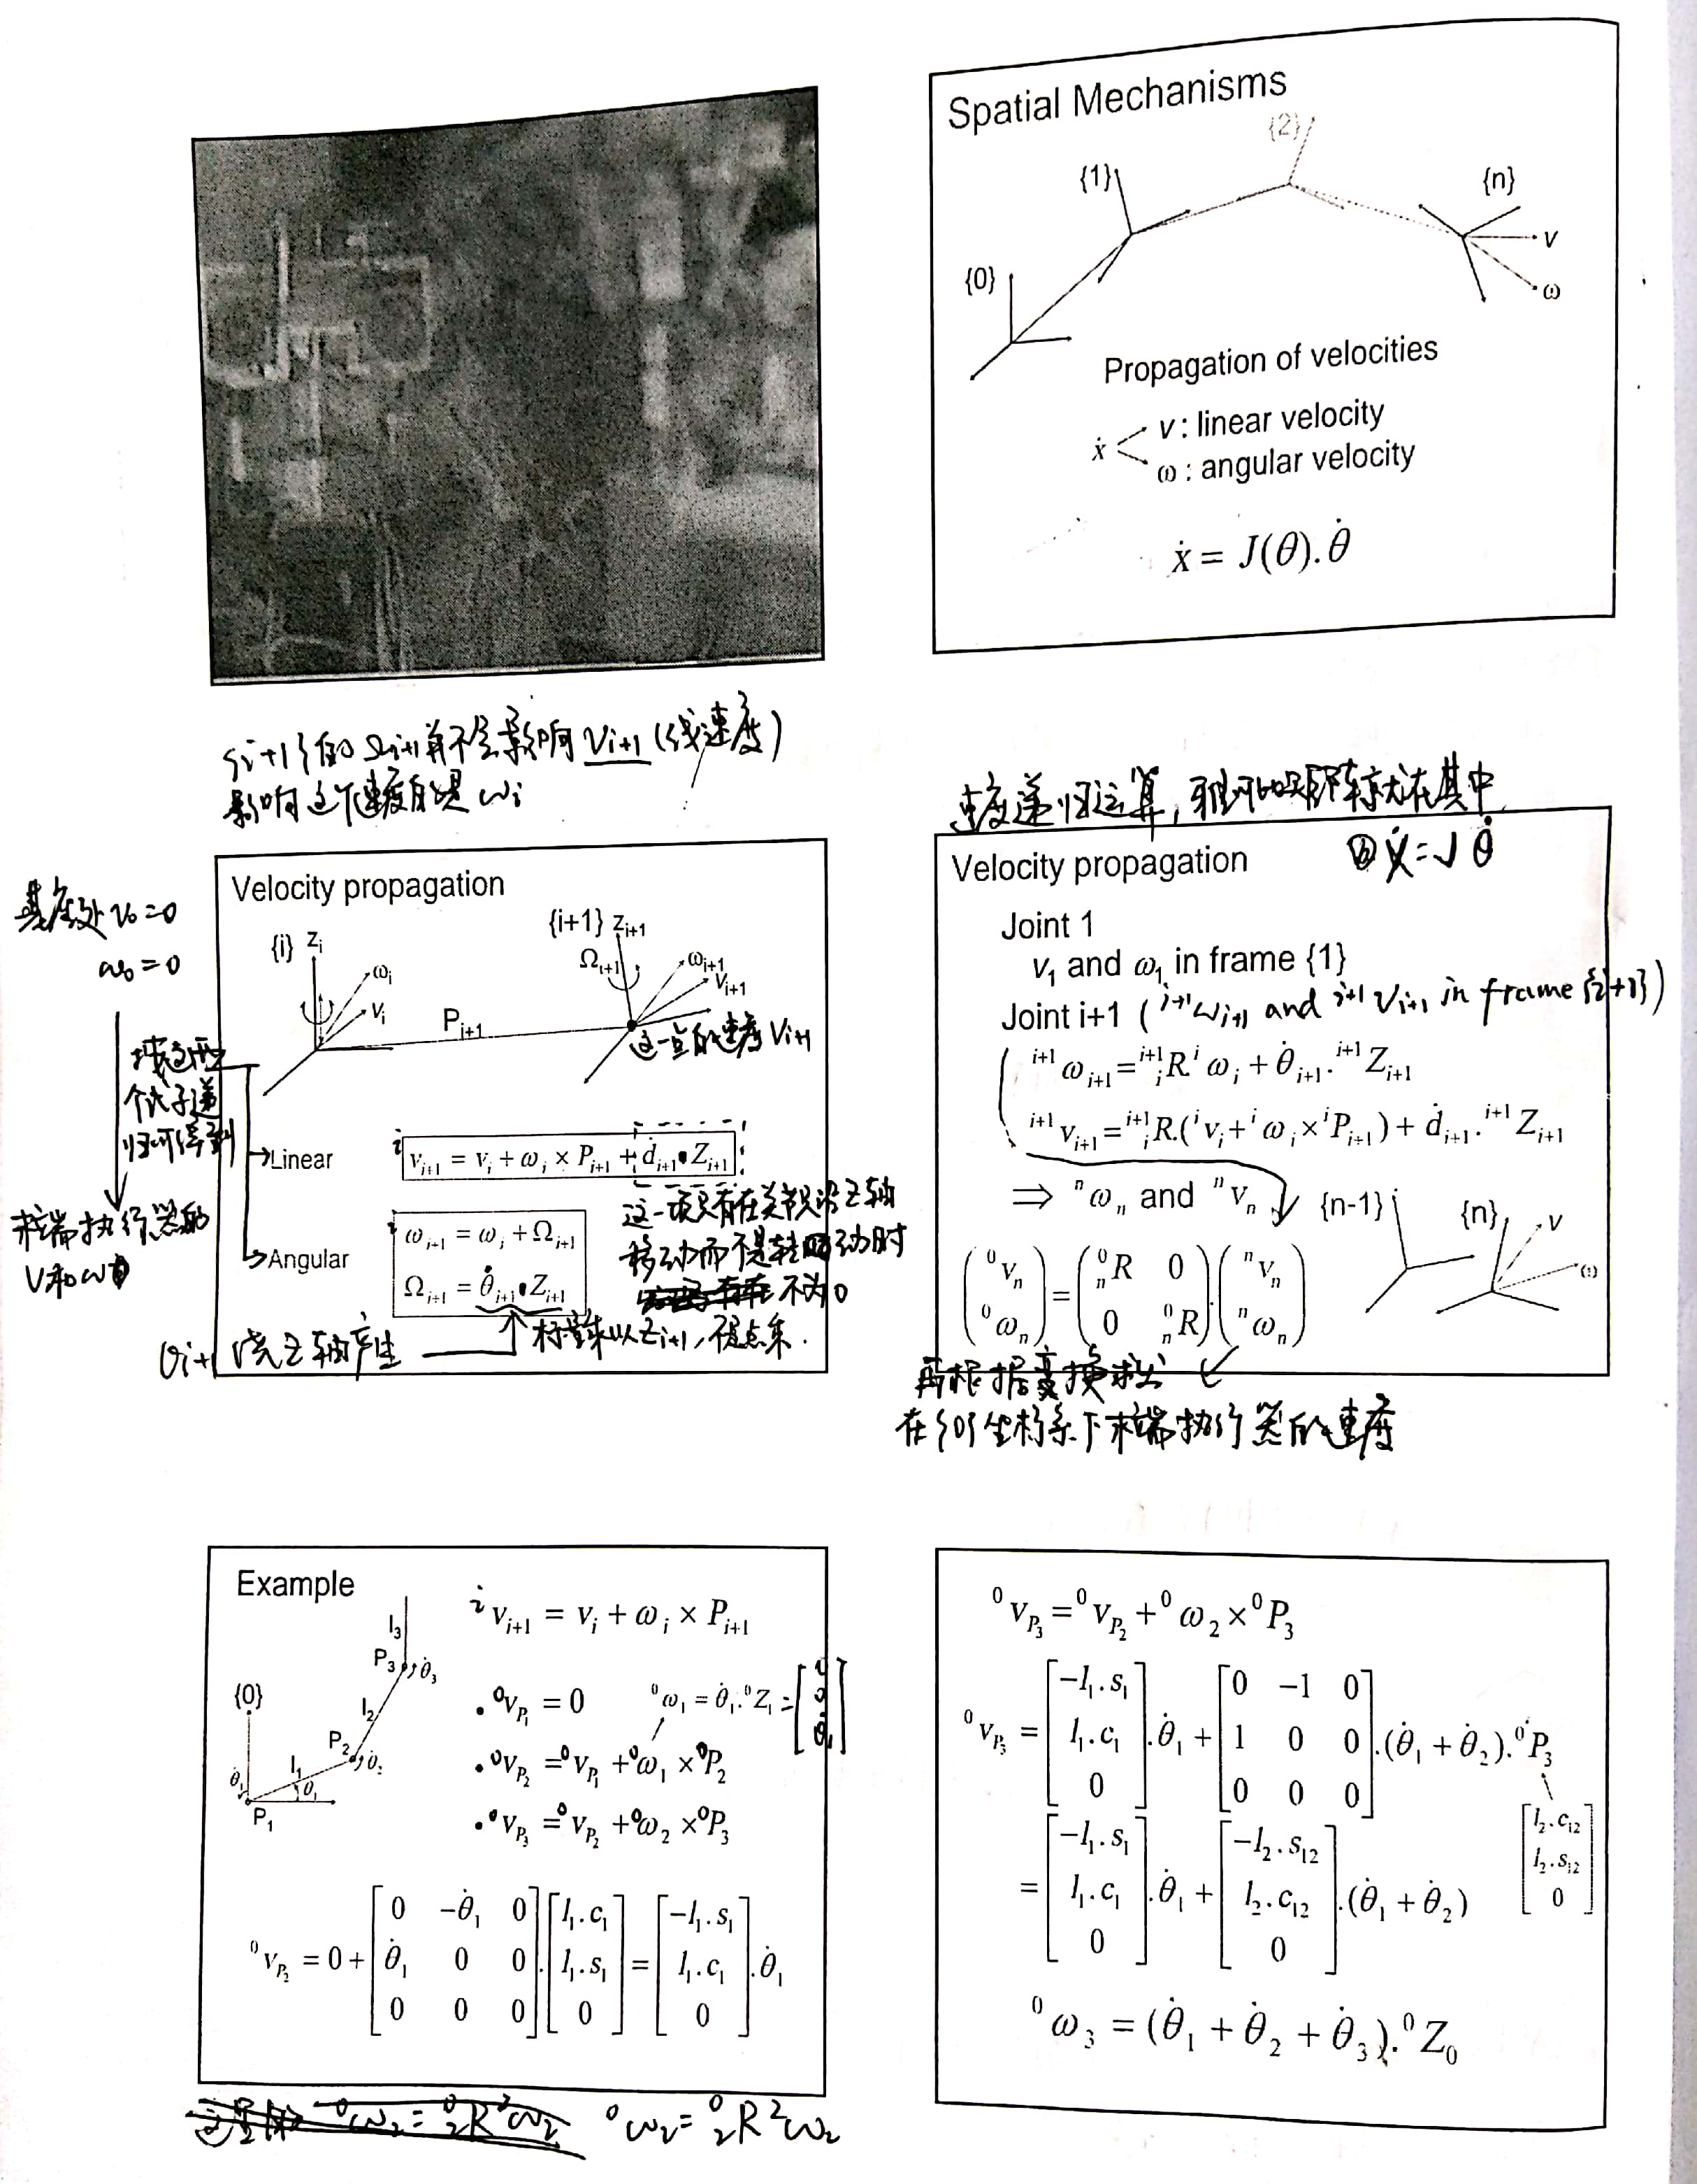 Spatial Mechanisms
{0}
{1}
{2}
{n}
v
ω
Propagation of velocities
ẋ
v : linear velocity
ω : angular velocity
ẋ = J(θ).θ̇
{i+1}的Ωi+1并不会影响 Vi+1 (线速度)
影响这个速度的是 ωi
基座处 v₀=0
ω₀=0
按这两
个式子递
归可得到
末端执行器的
V和ω
Velocity propagation
{i} Zᵢ
ωᵢ
vᵢ
Pᵢ₊₁
{i+1} Zᵢ₊₁
Ωᵢ₊₁
ωᵢ₊₁
Vᵢ₊₁
这一点的速度 Vi+1
Linear
i vᵢ₊₁ = vᵢ + ωᵢ × Pᵢ₊₁ + ḋᵢ₊₁ • Zᵢ₊₁
这一项只有在关节沿Z轴
移动而不是转动时
不为0
Angular
i ωᵢ₊₁ = ωᵢ + Ωᵢ₊₁
Ωᵢ₊₁ = θ̇ᵢ₊₁ • Zᵢ₊₁
θi+1 绕Z轴产生
标量乘以Zi+1, 不是点乘.
速度递归运算, 雅可比矩阵就在其中
ẋ = J θ̇
Velocity propagation
Joint 1
v₁ and ω₁ in frame {1}
Joint i+1 ( ⁱ⁺¹ωᵢ₊₁ and ⁱ⁺¹Vᵢ₊₁ in frame {i+1})
ⁱ⁺¹ωᵢ₊₁ = ⁱ⁺¹ᵢR.ⁱωᵢ + θ̇ᵢ₊₁.ⁱ⁺¹Zᵢ₊₁
ⁱ⁺¹vᵢ₊₁ = ⁱ⁺¹ᵢR.(ⁱvᵢ + ⁱωᵢ × ⁱPᵢ₊₁) + ḋᵢ₊₁.ⁱ⁺¹Zᵢ₊₁
⇒ ⁿωₙ and ⁿvₙ
{n-1}
{n}
v
ω
(⁰vₙ ; ⁰ωₙ) = (⁰ₙR 0 ; 0 ⁰ₙR).(ⁿvₙ ; ⁿωₙ)
再根据变换求出
在{0}坐标系下末端执行器的速度
Example
{0}
P₁
l₁
θ̇₁
θ₁
P₂
θ̇₂
l₂
P₃
θ̇₃
l₃
i vᵢ₊₁ = vᵢ + ωᵢ × Pᵢ₊₁
• ⁰v_P₁ = 0 ⁰ω₁ = θ̇₁.⁰Z₁ = [0 ; 0 ; θ̇₁]
• ⁰v_P₂ = ⁰v_P₁ + ⁰ω₁ × ⁰P₂
• ⁰v_P₃ = ⁰v_P₂ + ⁰ω₂ × ⁰P₃
⁰v_P₂ = 0 + [0 -θ̇₁ 0 ; θ̇₁ 0 0 ; 0 0 0].[l₁.c₁ ; l₁.s₁ ; 0] = [-l₁.s₁ ; l₁.c₁ ; 0].θ̇₁
⁰ω₂ = ⁰₂R ²ω₂
⁰v_P₃ = ⁰v_P₂ + ⁰ω₂ × ⁰P₃
⁰v_P₃ = [-l₁.s₁ ; l₁.c₁ ; 0].θ̇₁ + [0 -1 0 ; 1 0 0 ; 0 0 0].(θ̇₁ + θ̇₂).⁰P₃
[l₂.c₁₂ ; l₂.s₁₂ ; 0]
= [-l₁.s₁ ; l₁.c₁ ; 0].θ̇₁ + [-l₂.s₁₂ ; l₂.c₁₂ ; 0].(θ̇₁ + θ̇₂)
⁰ω₃ = (θ̇₁ + θ̇₂ + θ̇₃).⁰Z₀